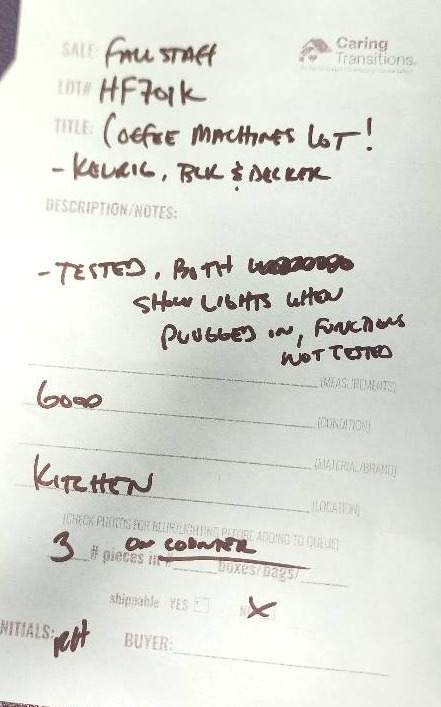 SALE: FALLSTAFF
Caring
Transitions
LOT# HF701K
TITLE: COFFEE MACHINES LOT!
- KEURIG, BLK & DECKER
DESCRIPTION/NOTES:
- TESTED, BOTH
SHOW LIGHTS WHEN
PLUGGED IN, FUNCTIONS
NOT TESTED
(MEASUREMENTS)
GOOD
(CONDITION)
(MATERIAL/BRAND)
KITCHEN
(LOCATION)
(CHECK PHOTOS FOR BLUR/LIGHTING BEFORE ADDING TO QUEUE)
3 # pieces in # ON COUNTER boxes/bags/
shippable YES N X
INITIALS: RH BUYER: